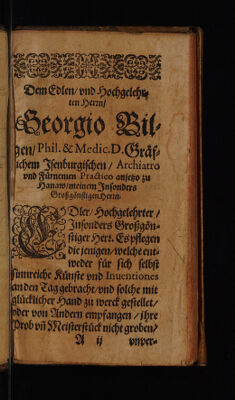 Dem Edlen/ vnd Hochgelehr-
ten Herrn/
Georgio Bil-
gen/ Phil. & Medic. D. Gräf-
lichem Isenburgischen/ Archiatro
vnd Fürnemen Practico anjetzo zu
Hanaw/ meinem Insonders
Großgönstigen Herrn.
EDler/ Hochgelehrter/
Insonders Großgön-
stiger Herr. Es pflegen
die jenigen/ welche ent-
weder für sich selbst
sinnreiche Künste vnd Inventiones
an den Tag gebracht/ vnd solche mit
glücklicher Hand zu werck gestellet/
oder von Andern empfangen/ ihre
Prob vñ Meisterstück nicht groben/
A ij vnver-